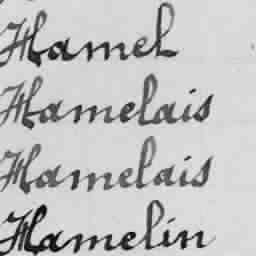 Hamel
Hamelais
Hamelais
Hamelin